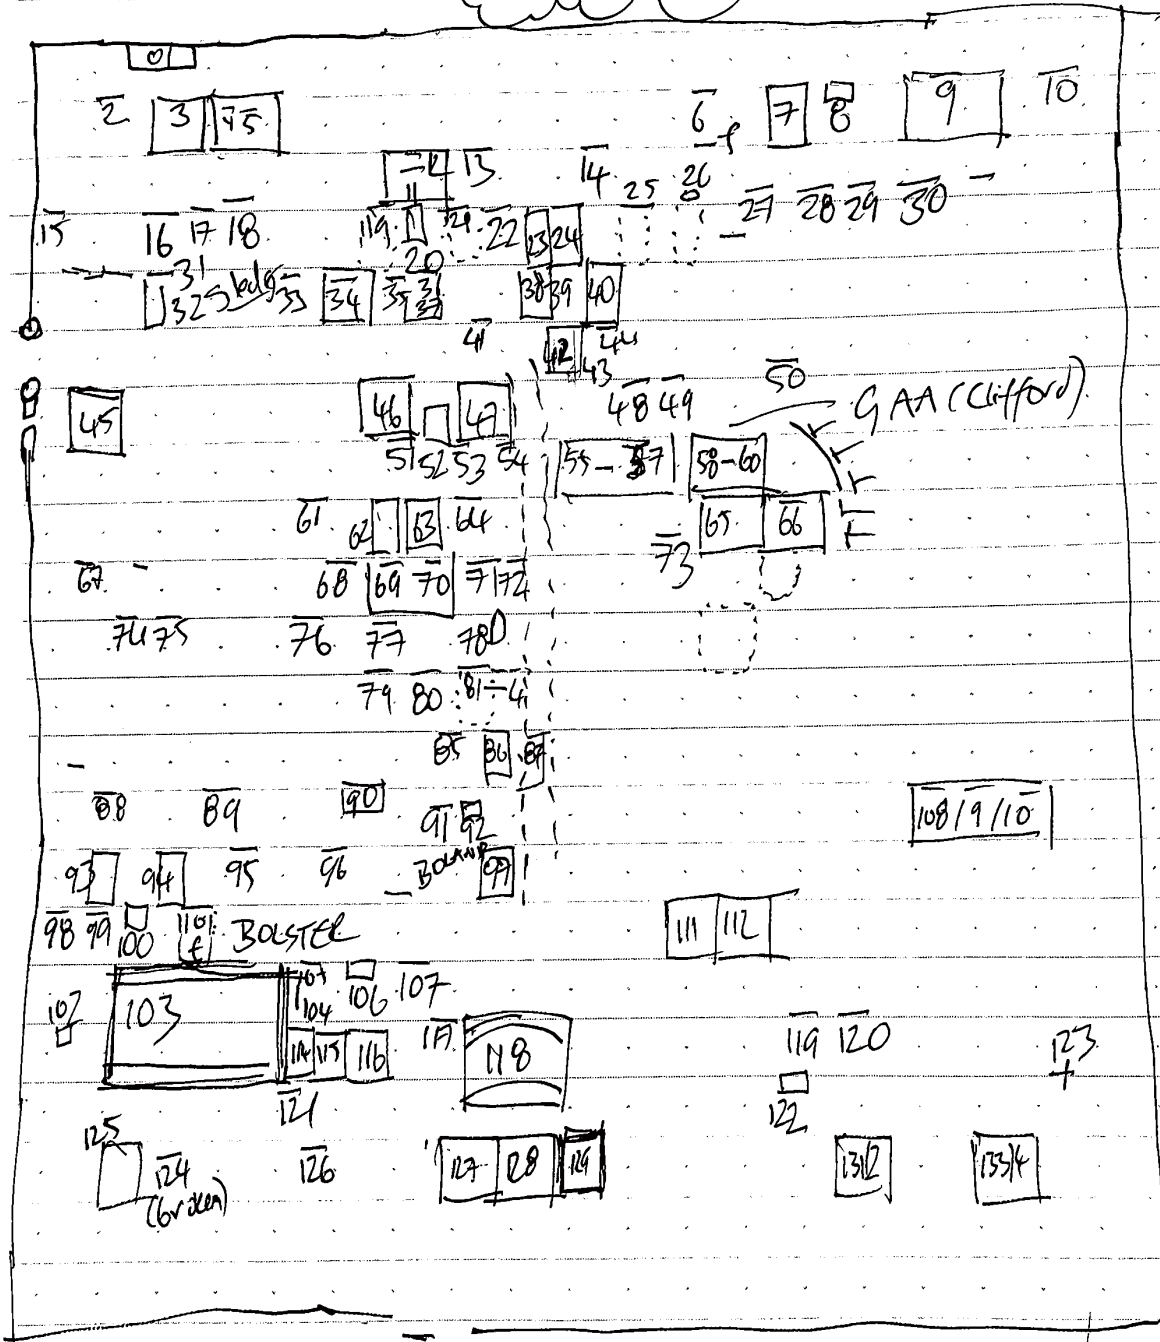 2 3 4/5 6 7 8 9 10
12 13 14 25 26
15 16 17 18 19 20 21 22 23 24 27 28 29 30
31 32 33 34 35 38 39 40
41 42 43 44
45 46 47 48 49 50 GAA (Clifford)
51 52 53 54 55-57 58-60
61 62 63 64 65 66
67 68 69 70 71 72 73
74 75 76 77 78
79 80 81-4
85 86 87
88 89 90 91 92 108/9/10
93 94 95 96 BOLAND
98 99 100 101 BOLSTER 111 112
102 103 104 106 107
114 115 116 117 118 119 120 123
121 122
125 124 126 127 128 129 131/2 133/4
(broken)